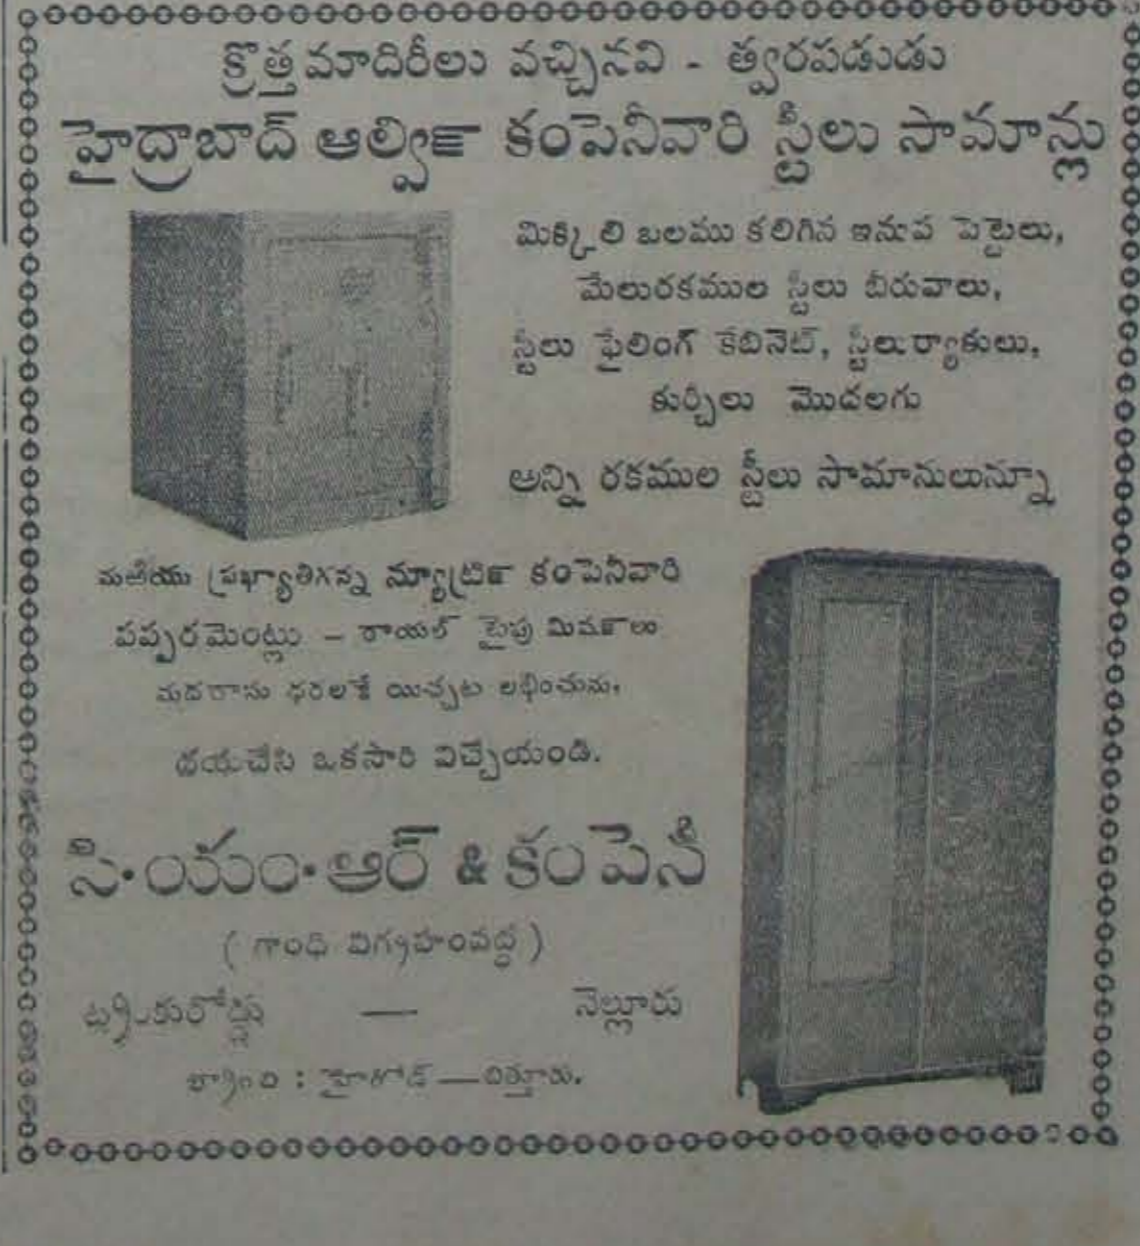 క్రొత్త మాదిరీలు వచ్చినవి - త్వరపడుడు
హైద్రాబాద్ ఆల్విక౯ కంపెనీవారి స్టీలు సామాన్లు
మిక్కిలి బలము కలిగిన ఇనుప పెట్టెలు,
మేలురకముల స్టీలు బీరువాలు,
స్టీలు ఫైలింగ్ కేబినెట్, స్టీలుర్యాకులు,
కుర్చీలు మొదలగు
అన్ని రకముల స్టీలు సామానులున్నూ
మఱియు ప్రఖ్యాతిగన్న న్యూట్రి౯ కంపెనీవారి
పప్పరమెంట్లు - రాయల్ టైపు మిష౯లు
మదరాసు ధరలకే యిచ్చట లభించును.
దయచేసి ఒకసారి విచ్చేయండి.
సి.యం.ఆర్ & కంపెనీ
( గాంధి విగ్రహంవద్ద )
ట్రంకురోడ్డు — నెల్లూరు
బ్రాంచి : హైరోడ్ — చిత్తూరు.